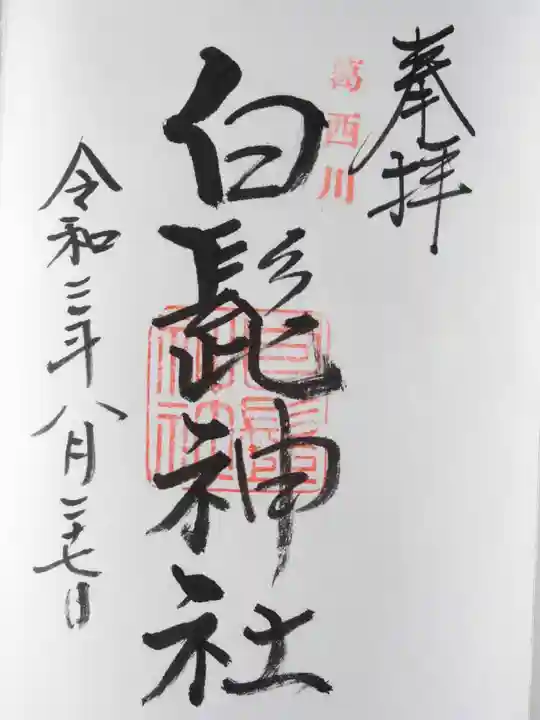 奉拝
葛西川
白髭神社
白髭神社
令和三年八月二十七日